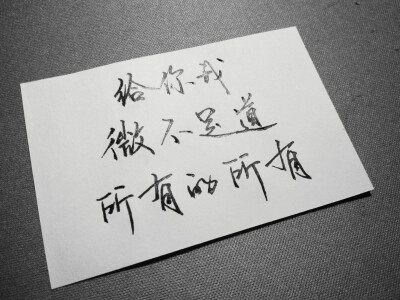 给你我
微不足道
所有的所有